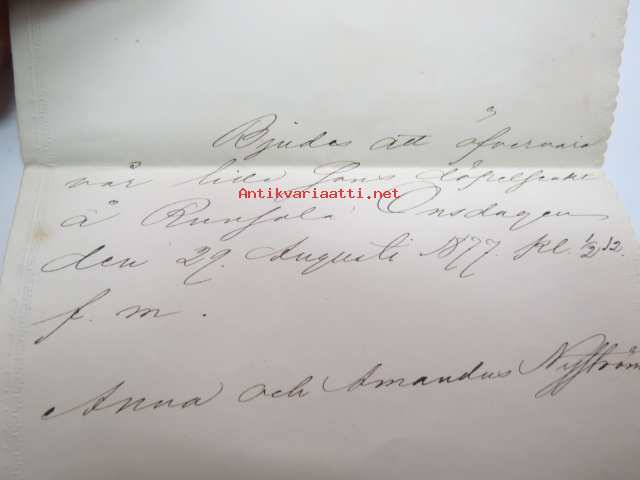 Bjudes att öfvervara
vår lilla Sons döpelseakt
Antikvariaatti.net
å Runsala Onsdagen
den 29. Augusti 1877. kl. 1/2 12.
f. m.
Anna och Amandus Nyström